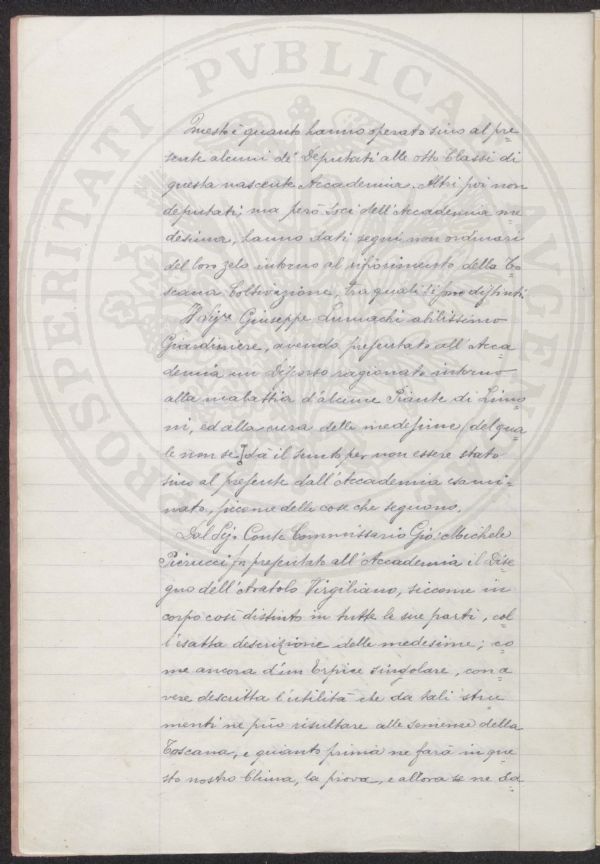 Questo è quanto hanno operato sino al pre=
sente alcuni de' Deputati alle otto Classi di
questa nascente Accademia. Altri poi non
deputati, ma però Soci dell'Accademia me=
desima, hanno dati segni non ordinari
del loro zelo intorno al rifiorimento della To=
scana Coltivazione, tra quali si sono distinti
Il Sigre Giuseppe Lumachi abilissimo
Giardiniere, avendo presentato all'Acca=
demia un discorso ragionato intorno
alla malattia d'alcune Piante di Limo=
ni, ed alla cura delle medesime, del qua=
le non se dà il sunto per non essere stato
sino al presente dall'Accademia esami=
nato, siccome delle cose che seguono.
Dal Sig. Conte Commissario Gio: Michele
Pierucci fu presentato all'Accademia il Dise=
gno dell'Aratolo Virgiliano, siccome in
corpo così distinto in tutte le sue parti, col=
l'esatta descrizione delle medesime; co=
me ancora d'un Erpice singolare, con a=
vere descritta l'utilità che da tali stru=
menti ne può risultare alle semense della
Toscana, e quanto prima ne farà in que=
sto nostro Clima, la prova, e allora se ne da=
PROSPERITATI PVBLICAE AVGENDAE